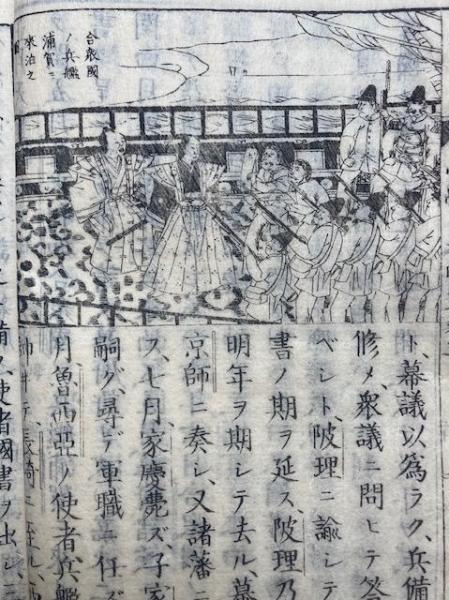 合衆國
ノ兵艦
浦賀ニ
來泊之
ト、幕議以爲ラク、兵備
修メ、衆議ニ問ヒテ答
ベシト、陂理ニ諭シテ
書ノ期ヲ延ス、陂理乃
明年ヲ期シテ去ル、幕
京師ニ奏シ、又諸藩ニ
ス、七月、家慶薨ズ、子家
嗣グ、尋デ軍職ニ任ズ
月魯西亞ノ使者兵艦
長崎ニ至ル、
使者國書ヲ出シ、